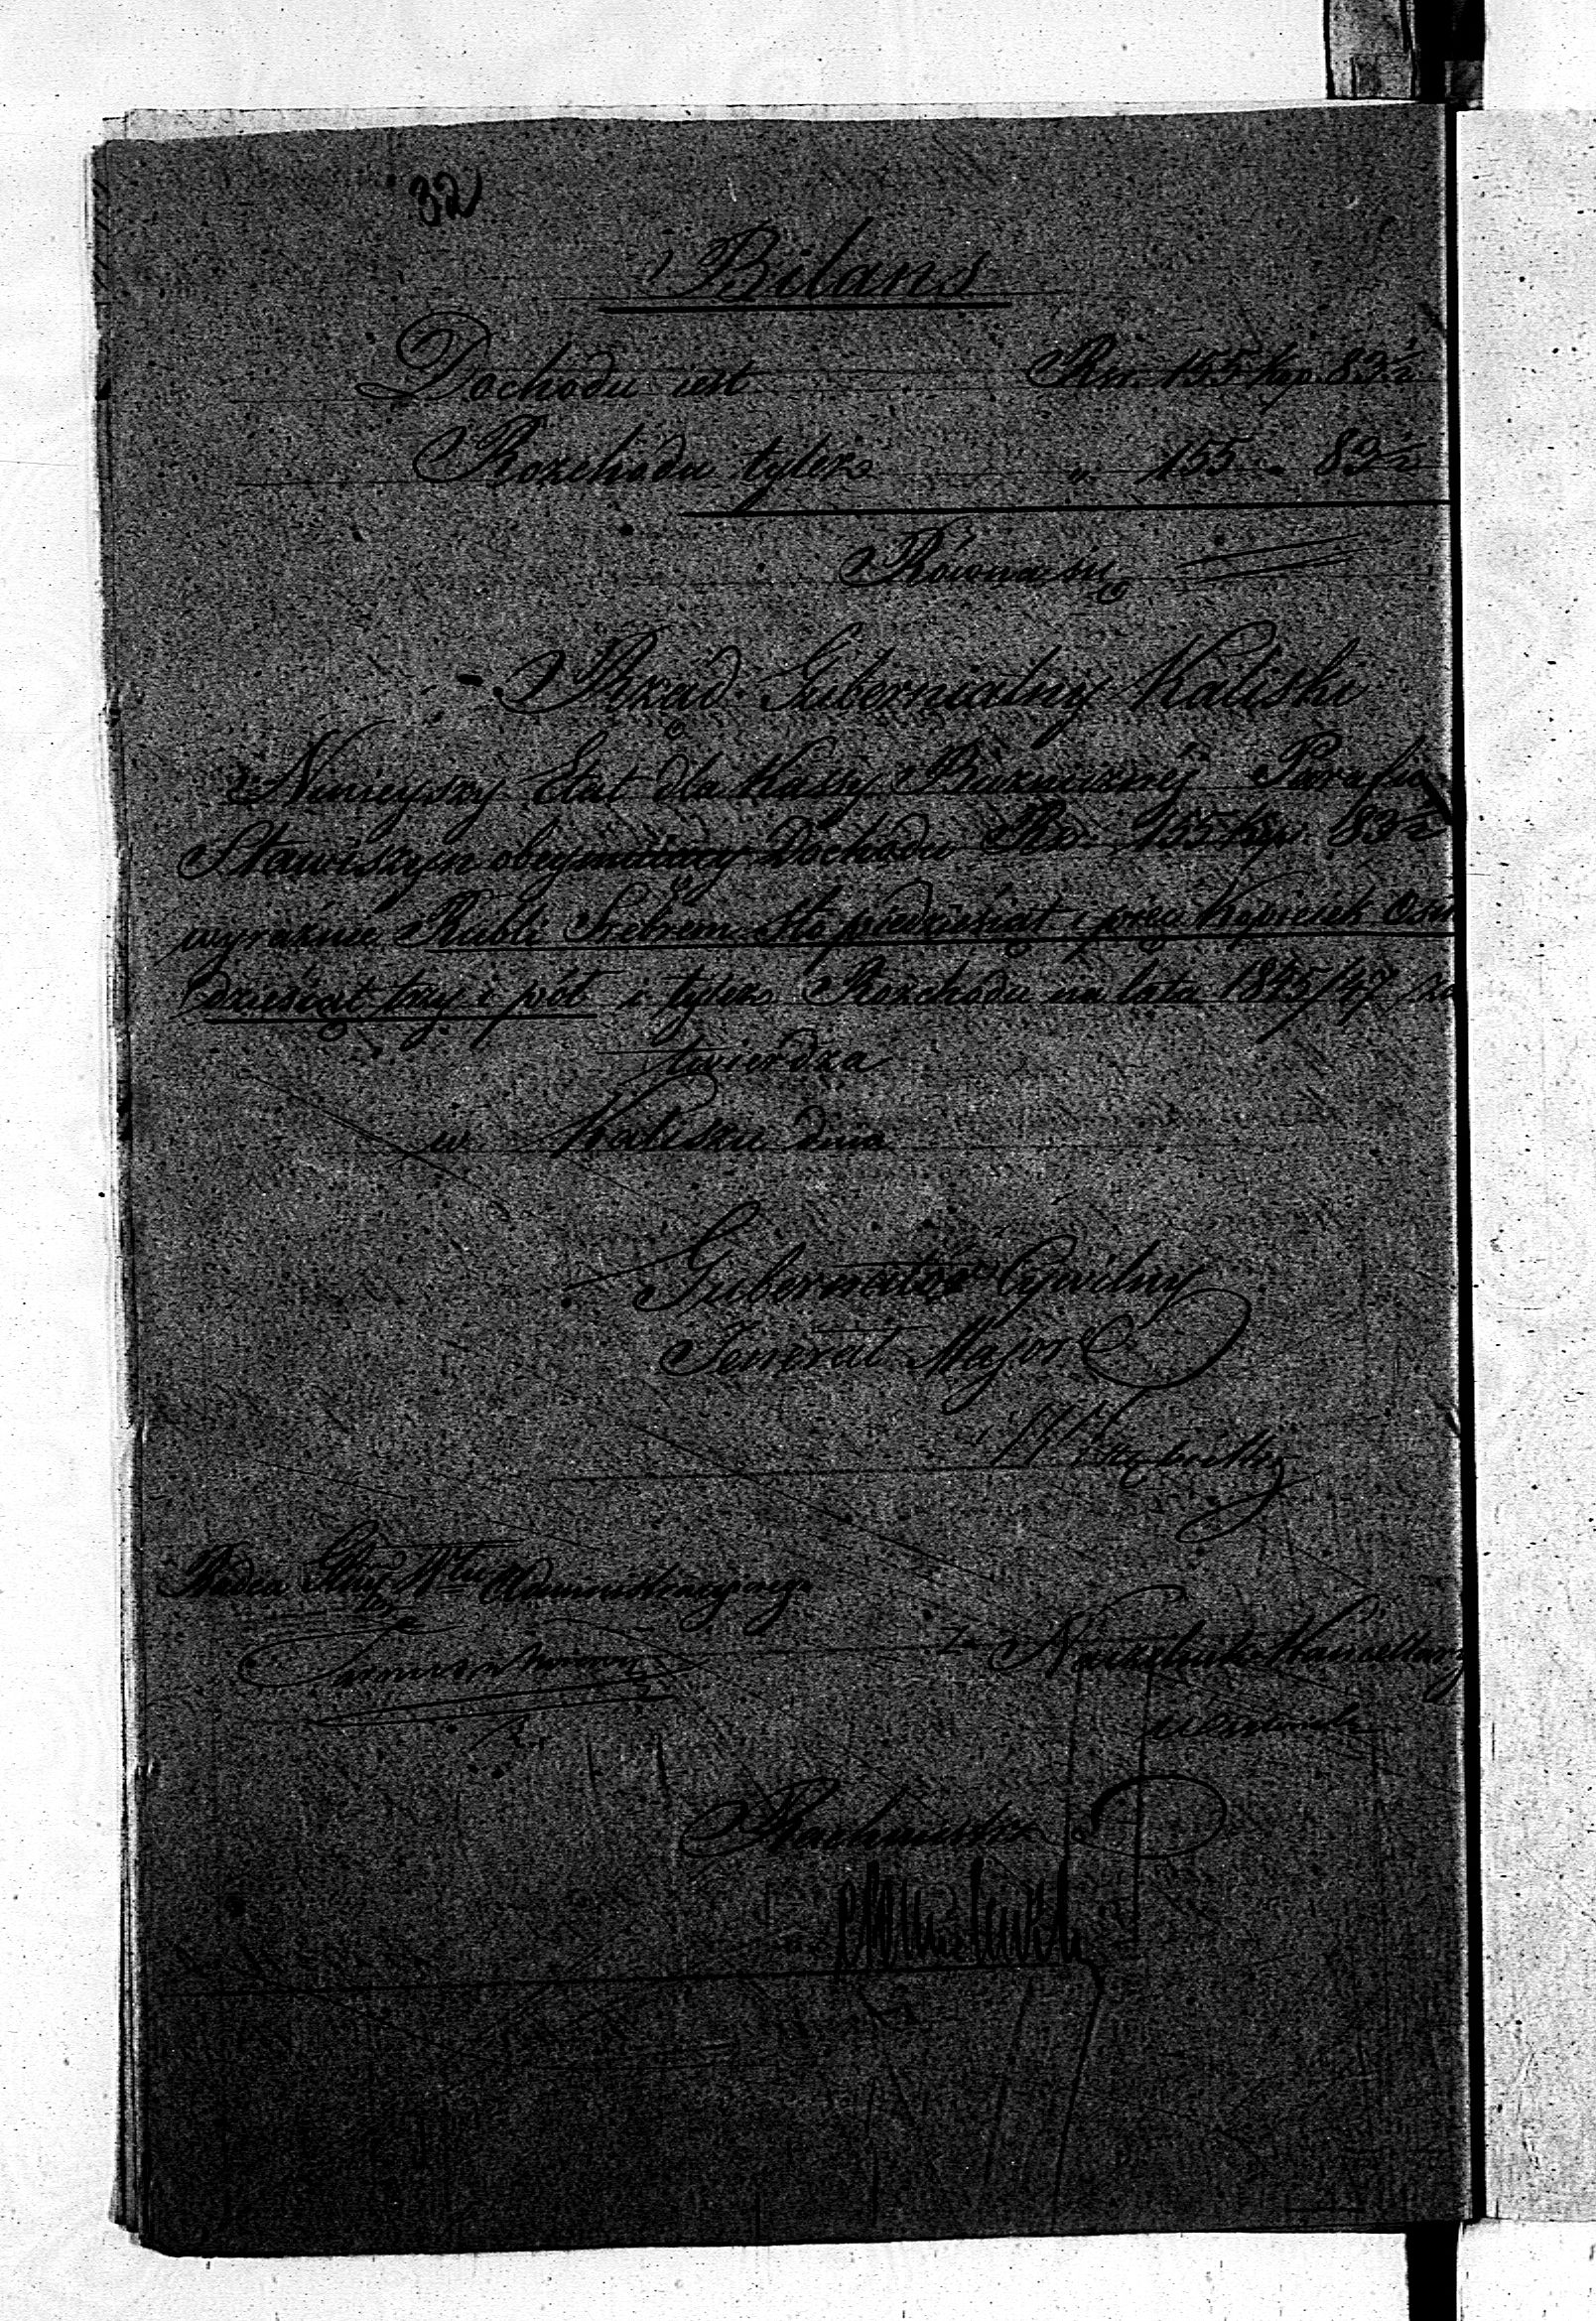 32
Bilans
Dochodu jest Rsr. 155 kop. 83½
Rozchodu tyleż " 155 " 83½
Równa się
Rząd Gubernialny Kaliski
Ninieyszy Etat dla Kassy Bożniczney Parafii
Stawiszyn obeymuiący Dochodu Rs. 155 kop. 83½
wyraźnie Rubli Srebrem Sto pięćdziesiąt i pięć kopieiek Ośm
dziesiąt trzy i pół i tyleż Rozchodu na lata 1845/47
twierdza
w Kaliszu dnia
Gubernator Cywilny
Jenerał Major
Radca Administracyinego
Naczelnik Kancellaryi
Rachmistrz